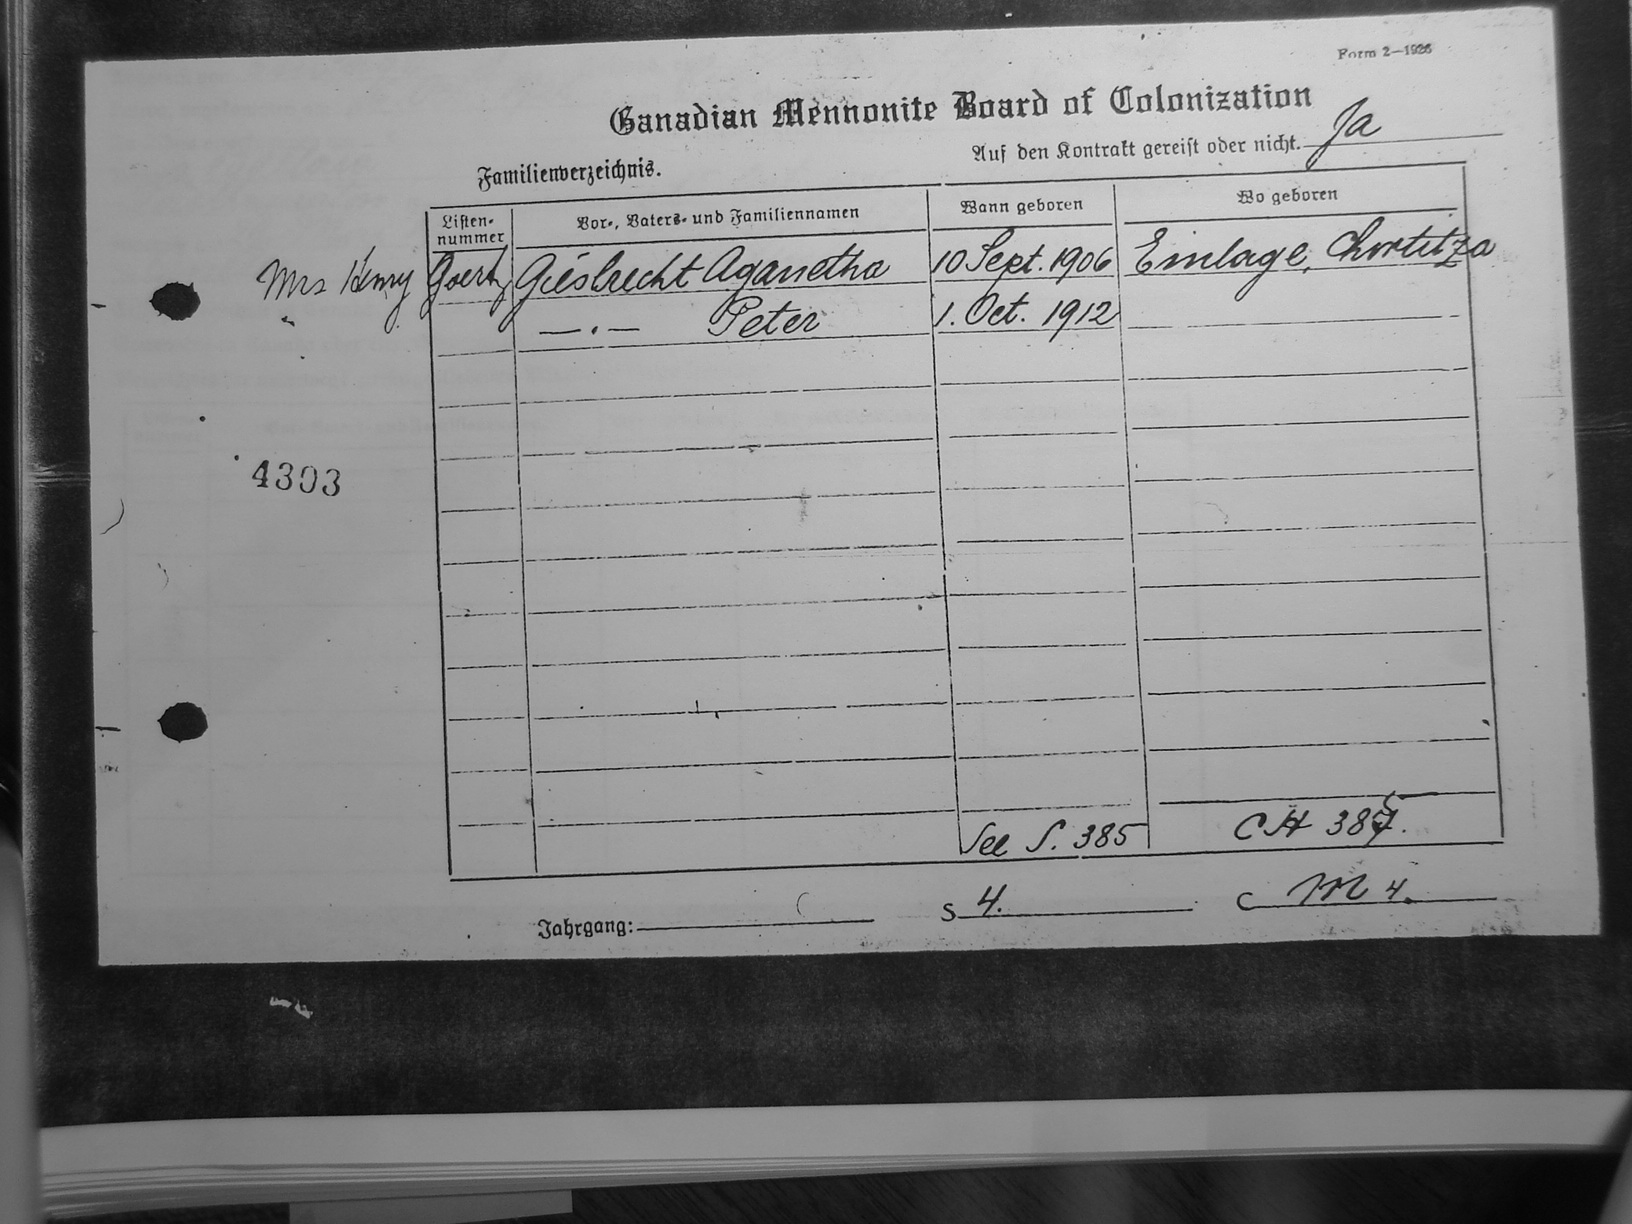 Form 2—1926
Canadian Mennonite Board of Colonization
Auf den Kontrakt gereist oder nicht. Ja
Familienverzeichnis.
Listen-nummer Vor-, Vaters- und Familiennamen Wann geboren Wo geboren
Mrs Henry Goertz Giesbrecht Aganetha 10 Sept. 1906 Einlage, Chortitza
—.— Peter 1. Oct. 1912
4303
See S. 385 CH 385.
Jahrgang: S 4. C M 4.